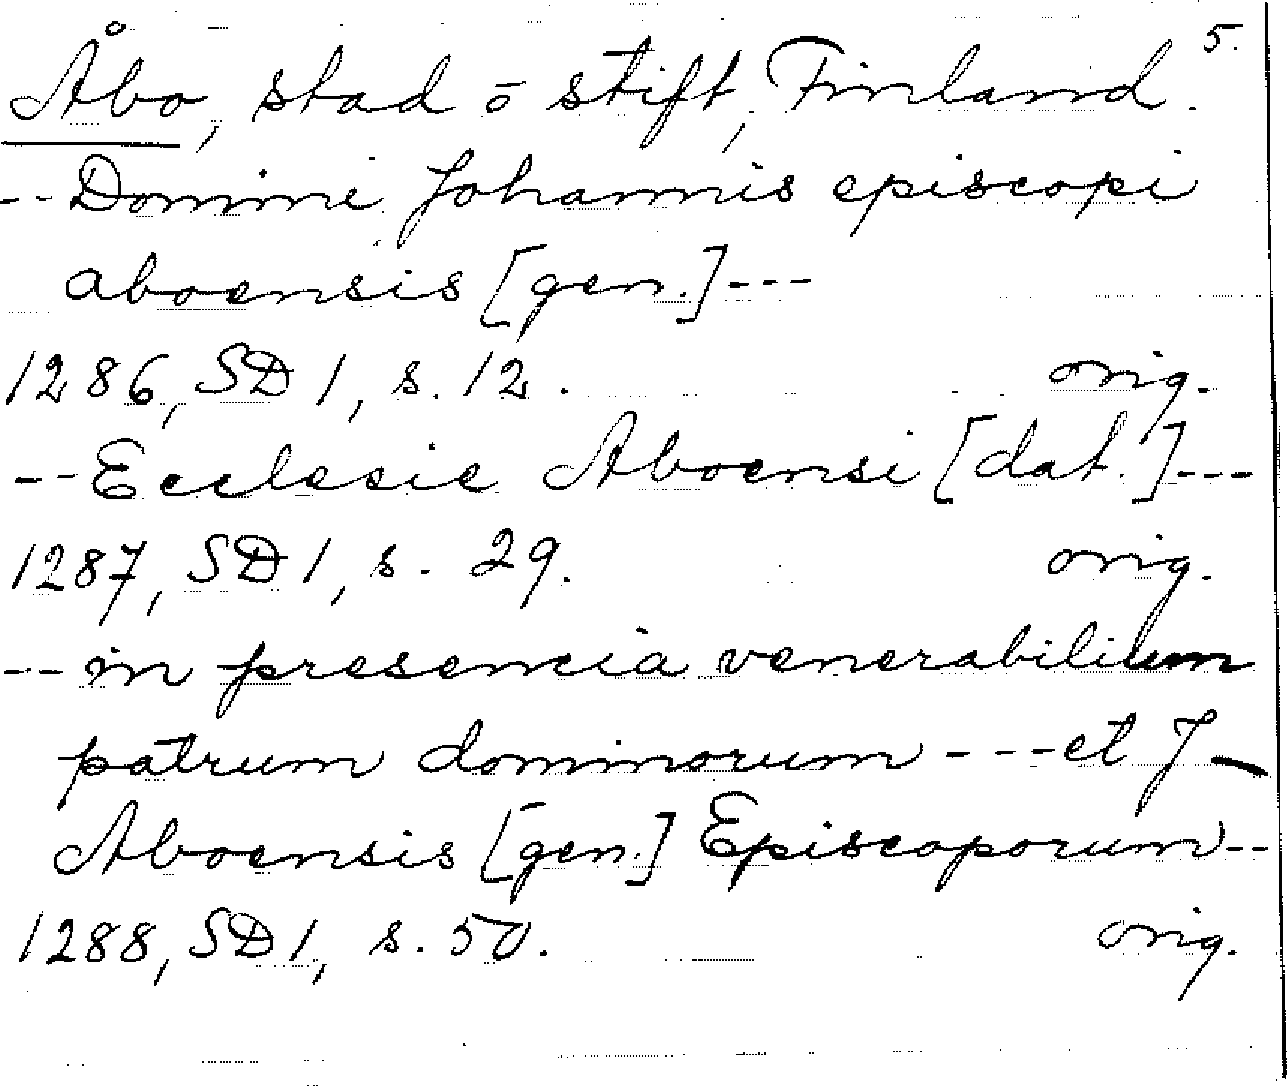 5.
Åbo, stad o stift, Finland.
-- Domini Johannis episcopi
aboensis [gen.] ---
1286, SD 1, s. 12. orig.
-- Ecclesie Aboensi [dat.] ---
1287, SD 1, s. 29. orig.
-- in presencia venerabilium
patrum dominorum --- et J –
Aboensis [gen.] Episcoporum --
1288, SD 1, s. 50. orig.